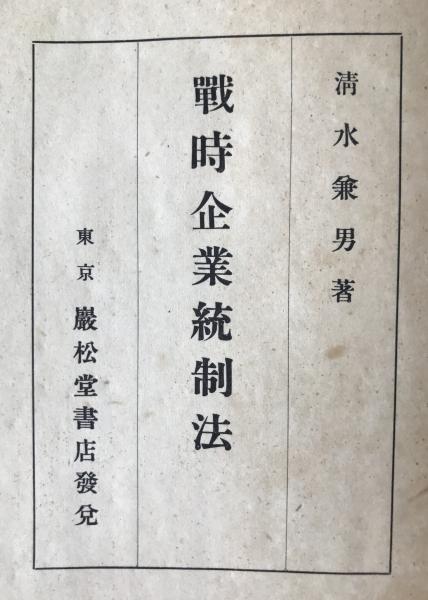 淸水兼男著
戰時企業統制法
東京 巖松堂書店發兌